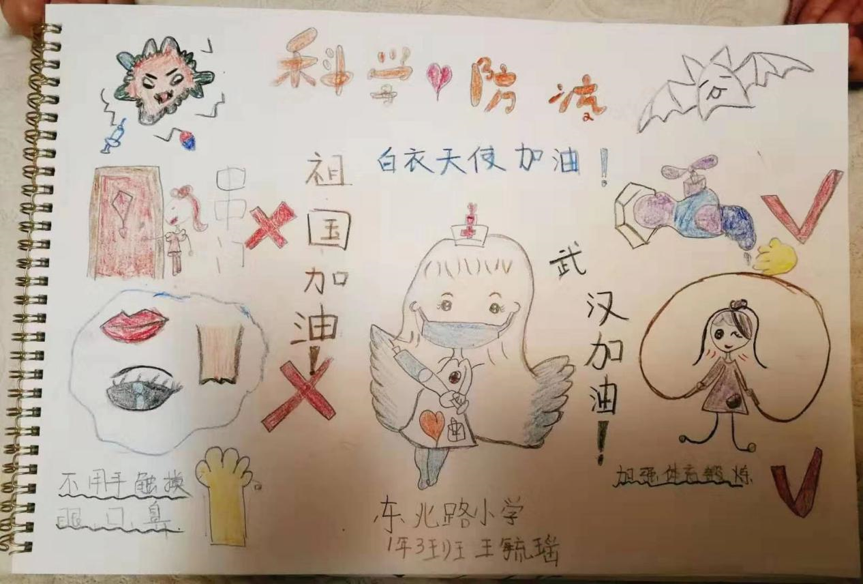 科学防疫
白衣天使加油！
串门
祖国加油！
武汉加油！
不用手触摸
眼、口、鼻
加强体育锻炼
东北路小学
1年3班 王毓瑶